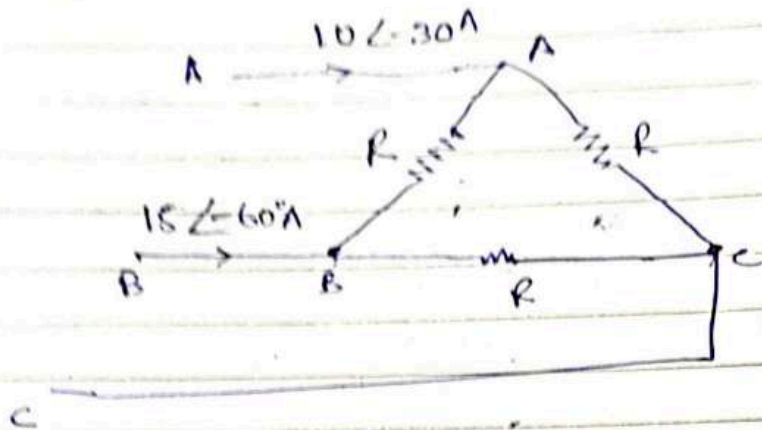 10∠-30A
A
A
R
R
15∠-60°A
B
B
R
C
C